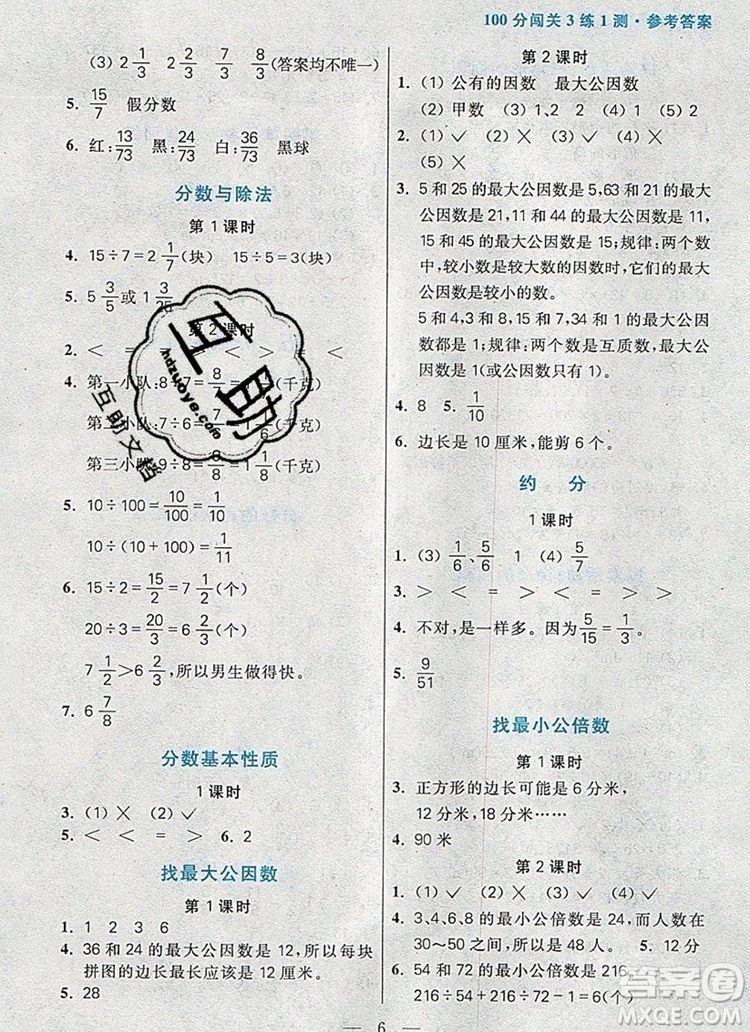 100分闯关3练1测·参考答案
(3) 2 1/3 2 2/3 7 1/3 (答案均不唯一)
5. 15/7 假分数
6. 红:13/73 黑:24/73 白:36/73 黑球
分数与除法
第1课时
4. 15÷7=2 1/7(块) 15÷5=3(块)
5. 5 3/5或1 3/25
第2课时
2. < < = > < >
4. 第一小队:8÷7=8/7=1 1/7(千克)
第二小队:7÷6=7/6=1 1/6(千克)
第三小队:9÷8=9/8=1 1/8(千克)
5. 10÷100=10/100=1/10
10÷(10+100)=1/11
6. 15÷2=15/2=7 1/2(个)
20÷3=20/3=6 2/3(个)
7 1/2>6 2/3,所以男生做得快。
7. 6 7/8
分数基本性质
1课时
3. (1)✕ (2)✓
5. < < = > 6. 2
找最大公因数
第1课时
1. 1 2 3 6
4. 36和24的最大公因数是12,所以每块
拼图的边长最长应该是12厘米。
5. 28
第2课时
1. (1)公有的因数 最大公因数
(2)甲数 (3)1、2 2 (4)1 (5)2
2. (1)✓ (2)✓ (3)✕ (4)✕
(5)✕
3. 5和25的最大公因数是5,63和21的最大
公因数是21,11和44的最大公因数是11,
15和45的最大公因数是15;规律:两个数
中,较小数是较大数的因数时,它们的最大
公因数是较小的数。
5和4,8和9,13和14,10和9的最大公因
数都是1;规律:两个数是互质数,最大公因
数是1(或公因数只有1)。
4. 8 5. 1/10
6. 边长是10厘米,能剪6个。
约 分
1课时
1. (3)1/6、5/6 1 (4)5/7
3. > < = < > >
4. 不对,是一样多。因为5/15=1/3。
5. 9/51
找最小公倍数
第1课时
3. 正方形的边长可能是6分米,
12分米,18分米……
4. 90米
第2课时
1. (1)✓ (2)✓ (3)✕ (4)✓
4. 3、4、6、8的最小公倍数是24,而人数在
30~50之间,所以是48人。 5. 12分
6. 54和72的最小公倍数是216。
216÷54=4(个) 216÷72=3(个)
6
互助
hdzuoye.com
互助文档
答案圈
MXQE.COM